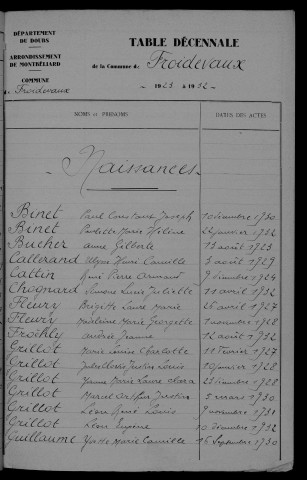 DÉPARTEMENT
DU DOUBS
ARRONDISSEMENT
DE MONTBÉLIARD
COMMUNE
de Froidevaux
TABLE DÉCENNALE
de la Commune de Froidevaux
1923 à 1932
NOMS et PRÉNOMS
DATES DES ACTES
Naissances
Binet Paul Constant Joseph 10 décembre 1930
Binet Paulette Marie Hélène 22 janvier 1932
Bucher Anne Gilberte 13 août 1923
Callerand Ulysse Henri Camille 3 août 1929
Cattin René Pierre Armand 9 décembre 1924
Chognard Simone Lucie Juliette 11 avril 1932
Fleury Brigitte Laure Marie 26 avril 1927
Fleury Madeleine Marie Georgette 1 novembre 1928
Froehly Andrée Jeanne 12 août 1932
Grillot Marie Louise Charlotte 11 février 1927
Grillot Justin Louis 10 janvier 1928
Grillot Jeanne Marie Laure Clara 23 décembre 1928
Grillot Marcel Arthur Justin 5 mars 1930
Grillot Léon René Louis 9 novembre 1931
Grillot Léon Eugène 10 décembre 1932
Guillaume Yvette Marie Camille 16 septembre 1930